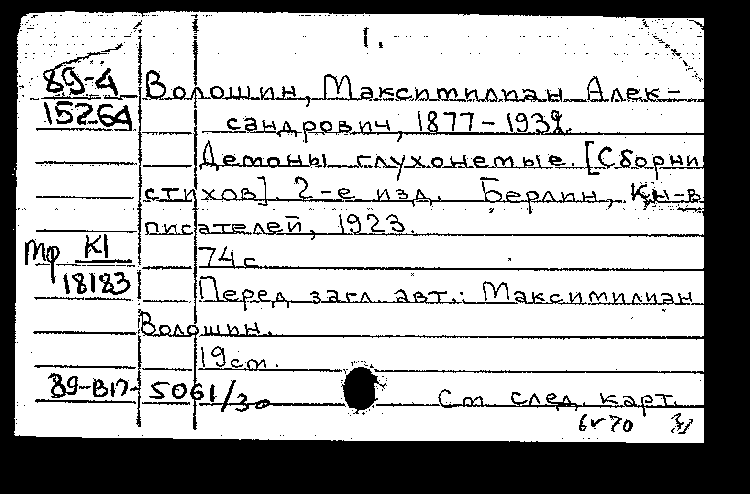 1.
89-4 Волошин, Максимилиан Алек-
15264 сандрович, 1877-1932.
Демоны глухонемые. [Сборни
стихов]. 2-е изд. Берлин, Кн-в
писателей, 1923.
Мф К1 74 с.
18183 Перед загл. авт.: Максимилиан
Волошин.
19 см.
89-В17-5061/30 См. след. карт.